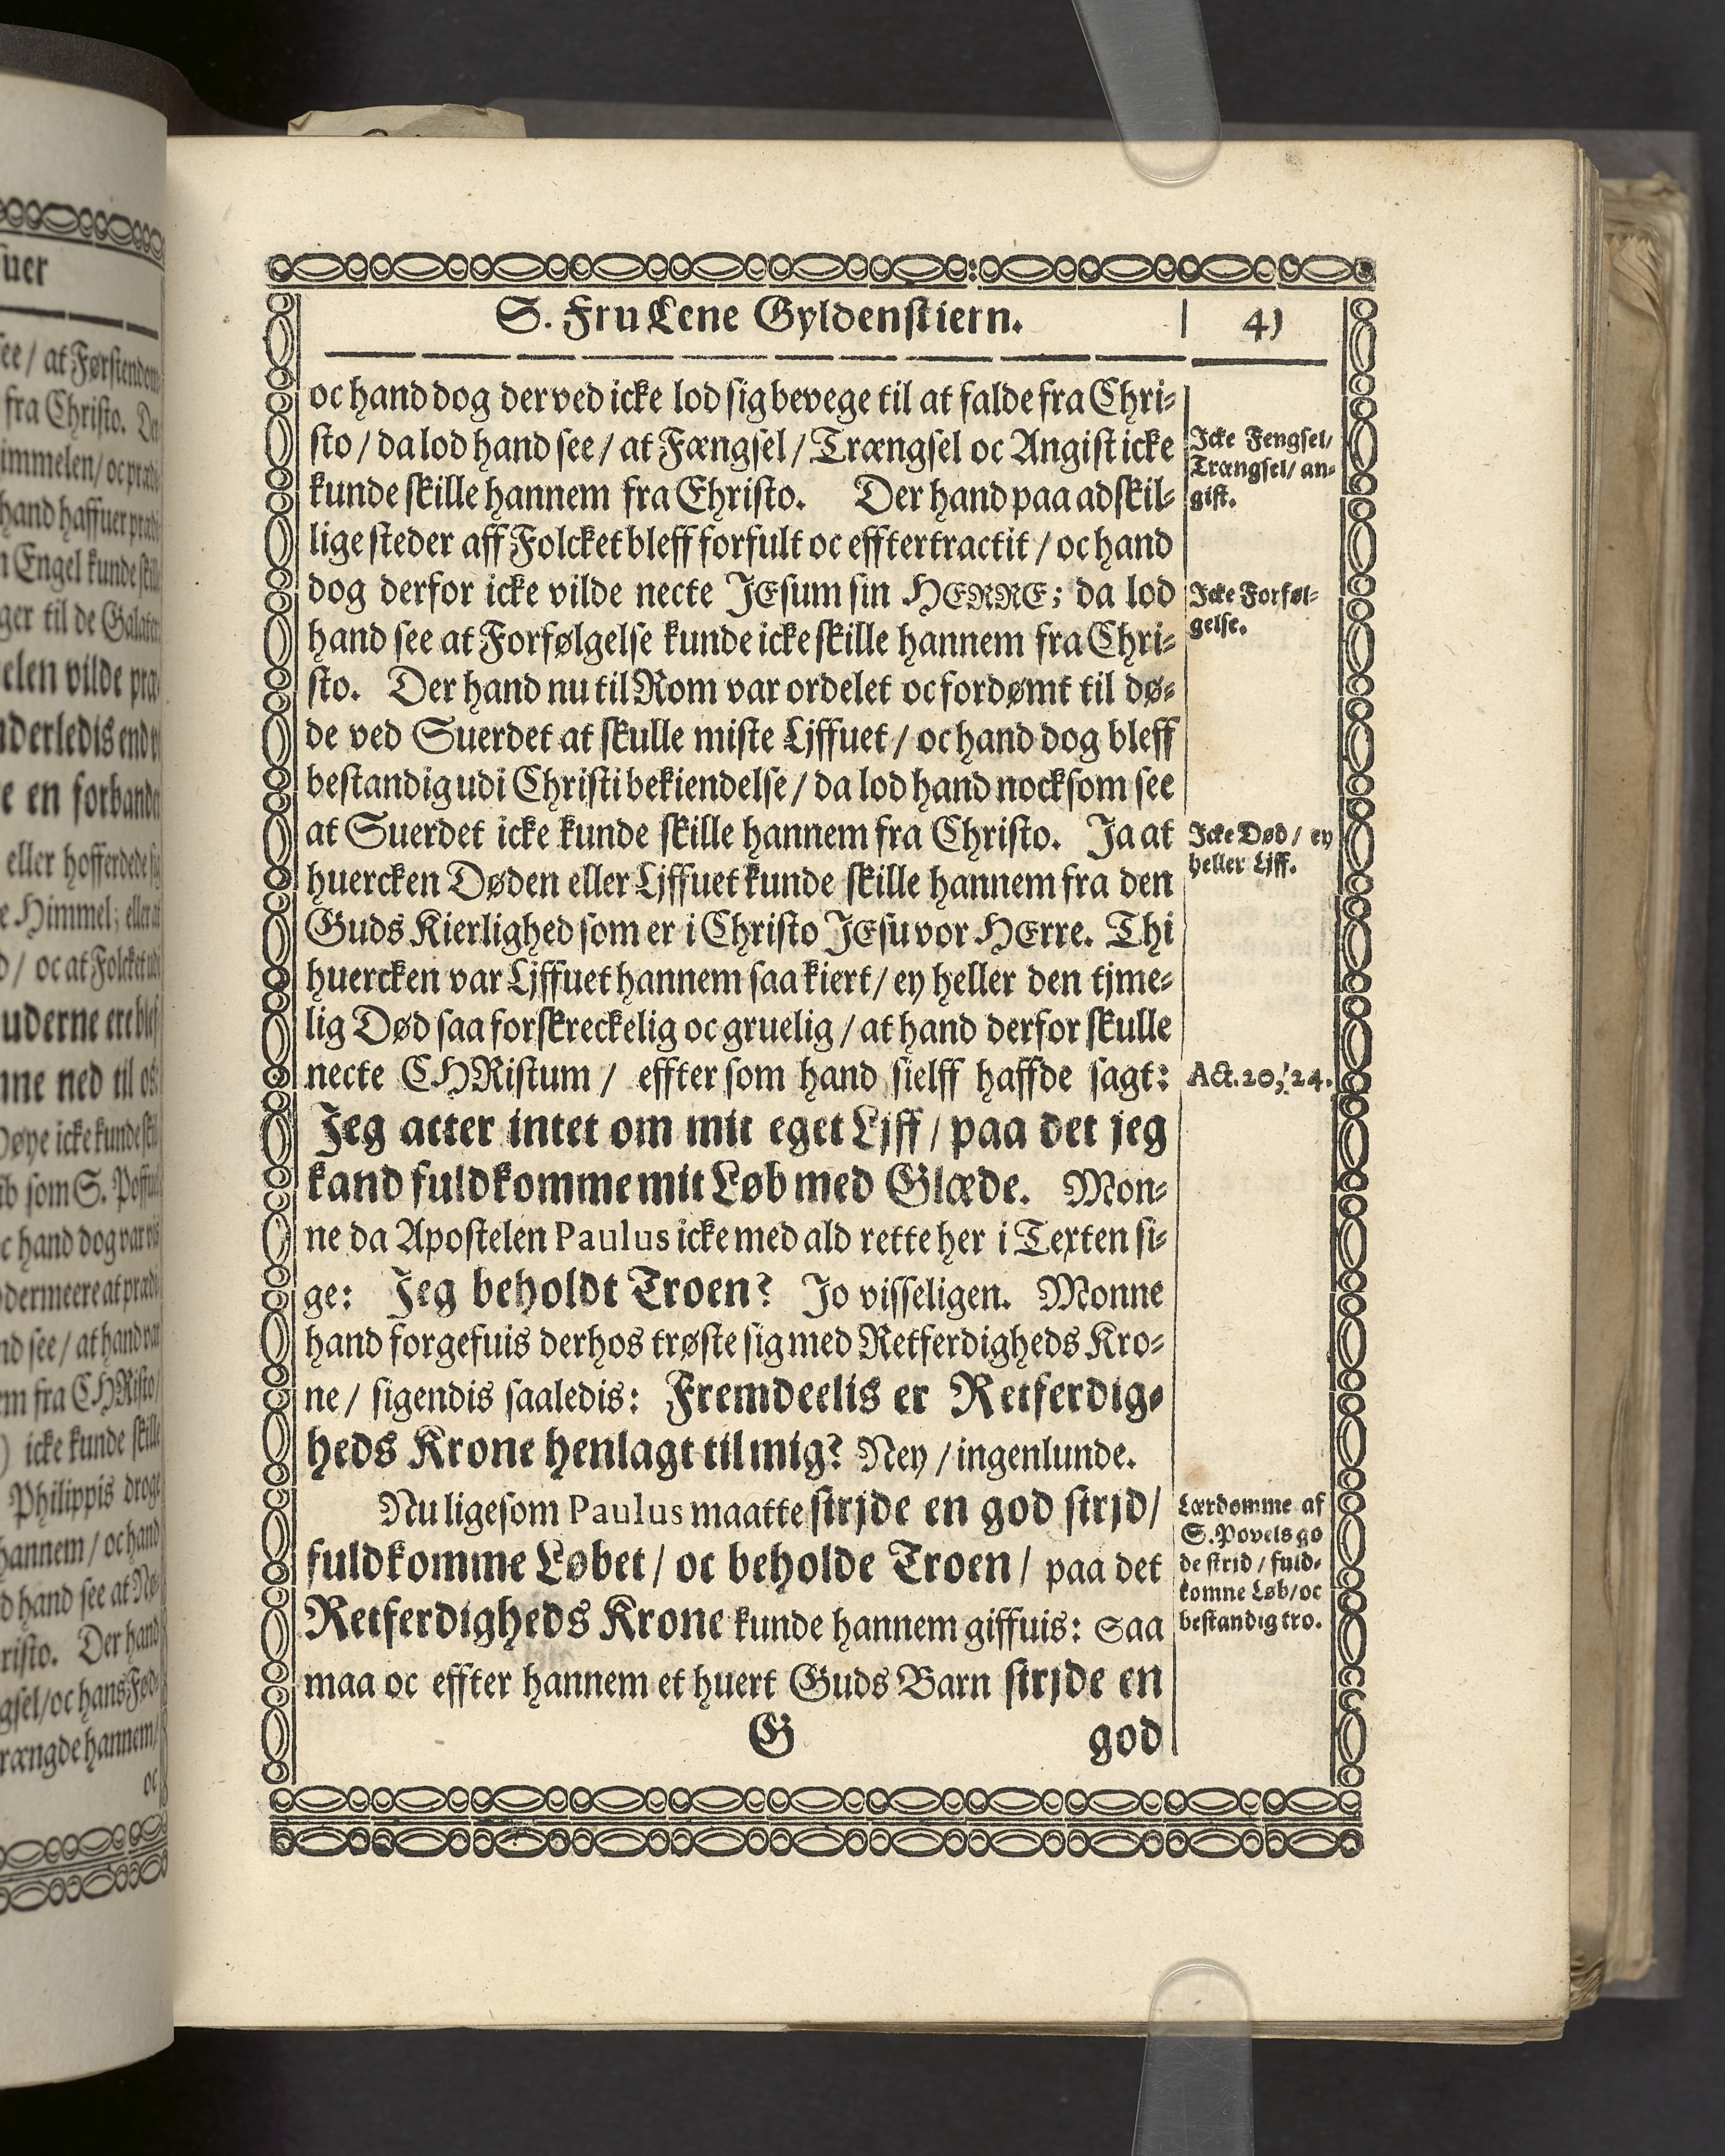 S. Fru Lene Gyldenstiern.
41
oc hand dog derved icke lod sig bevege til at falde fra Chri-
sto / da lod hand see / at Fængsel / Trængsel oc Angist icke
kunde skille hannem fra Christo. Der hand paa adskil-
lige steder aff Folcket bleff forfult oc efftertractit / oc hand
dog derfor icke vilde necte JEsum sin HERRE; da lod
hand see at Forfølgelse kunde icke skille hannem fra Chri-
sto. Der hand nu til Rom var ordelet oc fordømt til dø-
de ved Suerdet at skulle miste Ljffuet / oc hand dog bleff
bestandig udi Christi bekiendelse / da lod hand nocksom see
at Suerdet icke kunde skille hannem fra Christo. Ja at
huercken Døden eller Ljffuet kunde skille hannem fra den
Guds Kierlighed som er i Christo JEsu vor HErre. Thi
huercken var Ljffuet hannem saa kiert / ey heller den tjme-
lig Død saa forskreckelig oc gruelig / at hand derfor skulle
necte CHRistum / effter som hand sielff haffde sagt:
Jeg acter intet om mit eget Ljff / paa det jeg
kand fuldkomme mit Løb med Glæde. Mon-
ne da Apostelen Paulus icke med ald rette her i Texten si-
ge: Jeg beholdt Troen? Jo visseligen. Monne
hand forgefuis derhos trøste sig med Retferdigheds Kro-
ne / sigendis saaledis: Fremdeelis er Retferdig-
heds Krone henlagt til mig? Ney / ingenlunde.
Nu ligesom Paulus maatte strjde en god strjd /
fuldkomme Løbet / oc beholde Troen / paa det
Retferdigheds Krone kunde hannem giffuis: Saa
maa oc effter hannem et huert Guds Barn strjde en
G god
Icke Fengsel/
Trængsel/ an-
gist.
Icke Forføl-
gelse.
Icke Død / ey
heller Ljff.
Act. 20, 24.
Lærdomme af
S. Povels go
de strid / fuld-
komne Løb/ oc
bestandig tro.